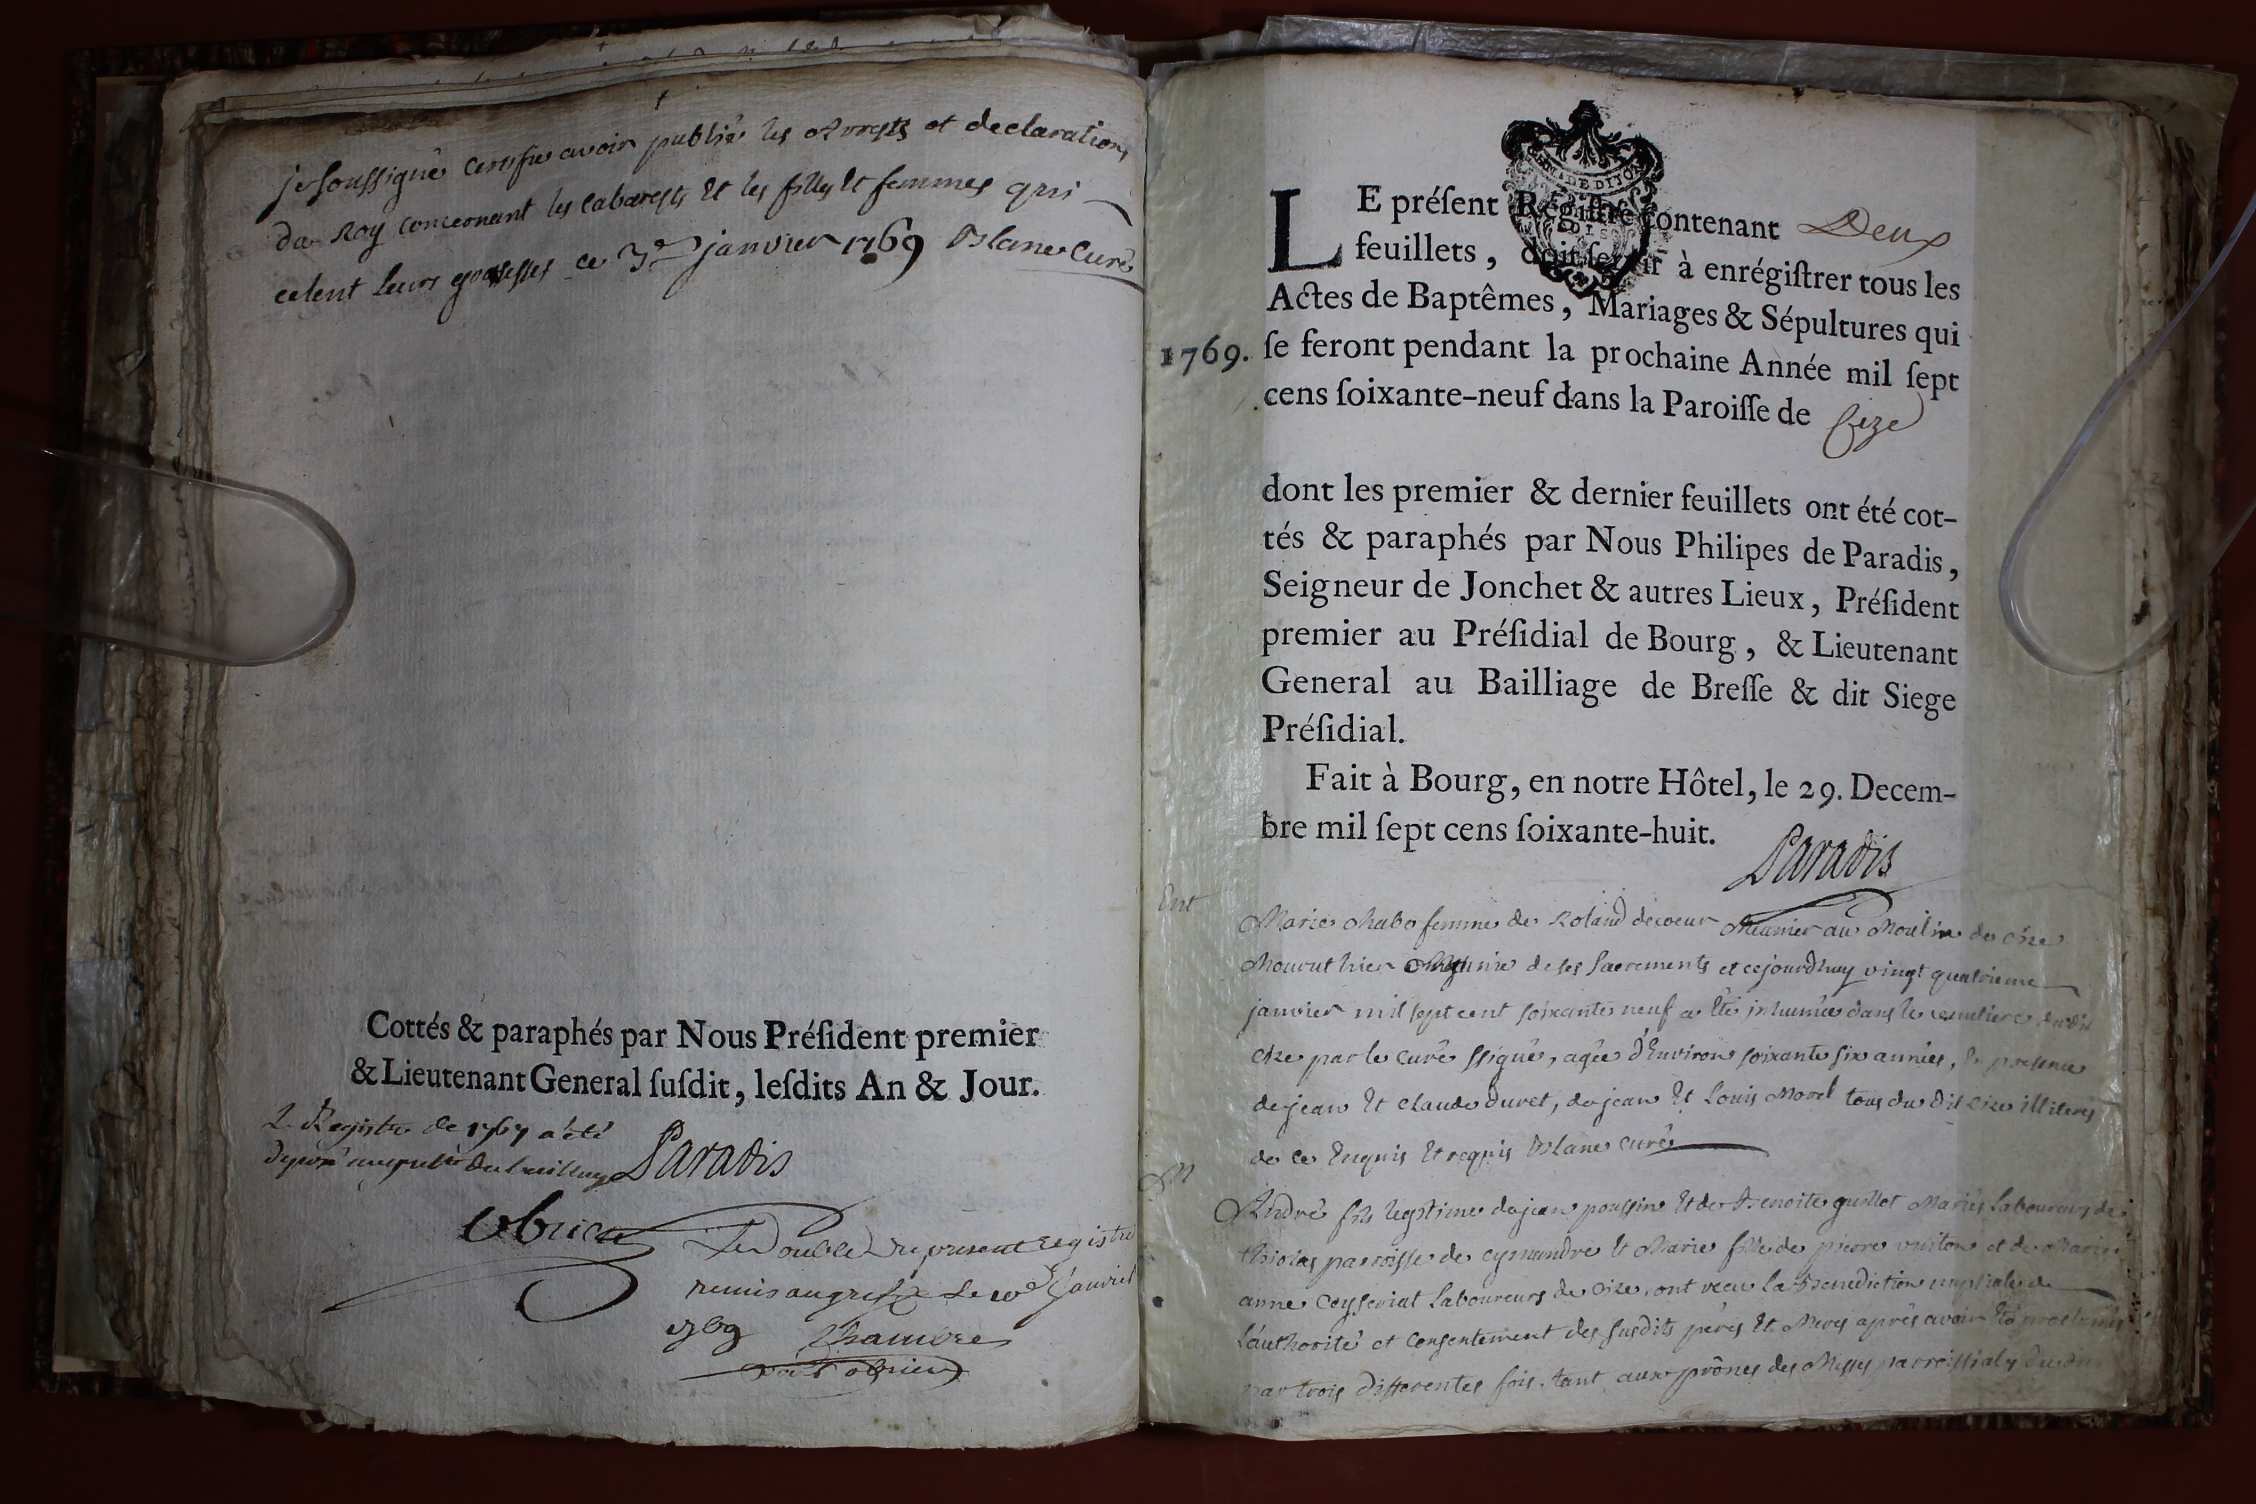 je soussigné certifie avoir publié les Arrests et declarations
du Roy concernant les cabarests Et les filles Et femmes qui
celent leurs grossesses ce 3e janvier 1769 Blanc Curé
Cottés & paraphés par Nous Préſident premier
& Lieutenant General ſuſdit, leſdits An & Jour.
Le Registre de 1767 a été
Paradis
Le Double du present registre
remis au greffe le 10e Janvier
1769
LE préſent Regiſtre contenant Deux
feuillets, doit ſervir à enrégiſtrer tous les
Actes de Baptêmes, Mariages & Sépultures qui
1769. ſe feront pendant la prochaine Année mil ſept
cens ſoixante-neuf dans la Paroiſſe de Cize
dont les premier & dernier feuillets ont été cot-
tés & paraphés par Nous Philipes de Paradis,
Seigneur de Jonchet & autres Lieux, Préſident
premier au Préſidial de Bourg, & Lieutenant
General au Bailliage de Breſſe & dit Siege
Préſidial.
Fait à Bourg, en notre Hôtel, le 29. Decem-
bre mil ſept cens ſoixante-huit.
Paradis
Ent
Marie Chabo femme de Roland decoeur Meunier au Moulin de Cize
munie de ses Sacrements et cejourdhuy vingt quatrieme
janvier mil sept cent soixante neuf a Eté inhumée dans le cemetiere dudit
Cize par le curé ssigné, agée d'Environ soixante six années, En presence
de jean Et Claude Duret, de jean Et Louis Morel tous du dit Cize illiterés
de ce Enquis Et requis Blanc Curé
M
André fils legitime de jean poussin Et de Benoite guillot Mariés Laboureurs de
paroisse de Et Marie fille de pierre et de Marie
anne Ceyseriat Laboureurs de Cize, ont recu la Benediction nuptiale de
L'authorité et Consentement des susdits péres Et Meres aprés avoir Eté proclamés
par trois differentes fois, tant aux prônes des Messes parroissiales